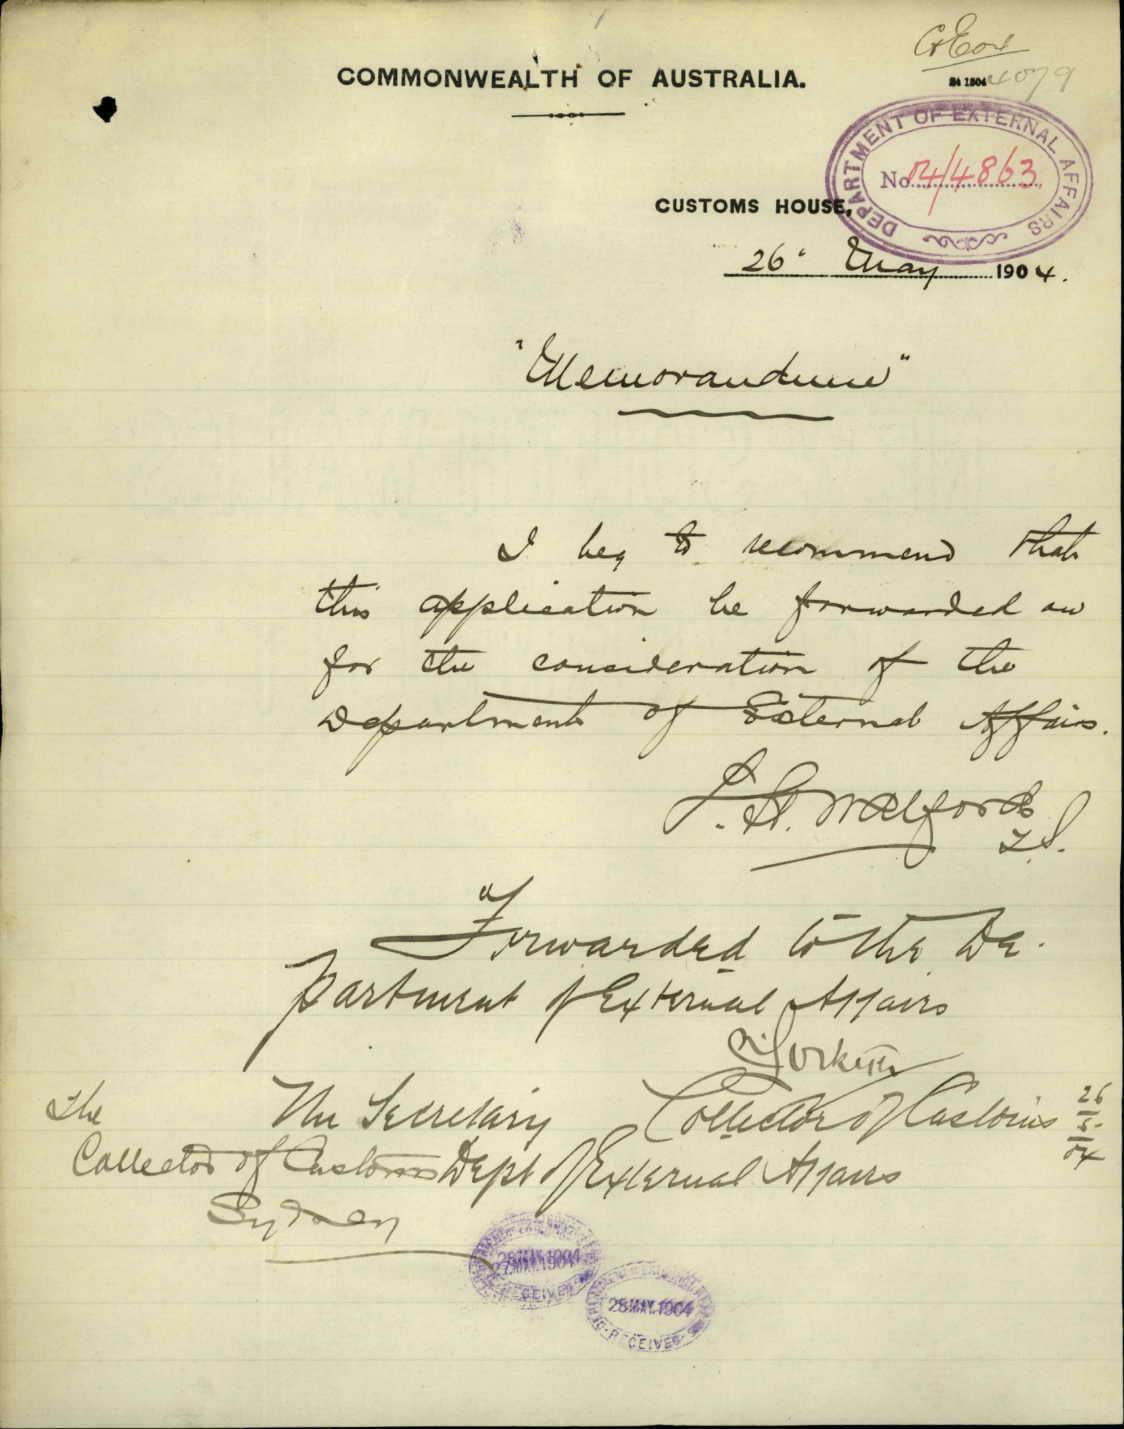 4079
COMMONWEALTH OF AUSTRALIA.
DEPARTMENT OF EXTERNAL AFFAIRS
No 04/4863
CUSTOMS HOUSE,
26' May 1904.
"Memorandum"
I beg to recommend that
this application be forwarded on
for the consideration of the
Department of External Affairs.
J. St. Walford
Forwarded to the De-
partment of External Affairs
Collector of Customs 26/5/04
The Secretary
Dept of External Affairs
The
Collector of Customs
Sydney
28 MAY. 1904
27 MAY. 1904
RECEIVED
28 MAY. 1904
RECEIVED